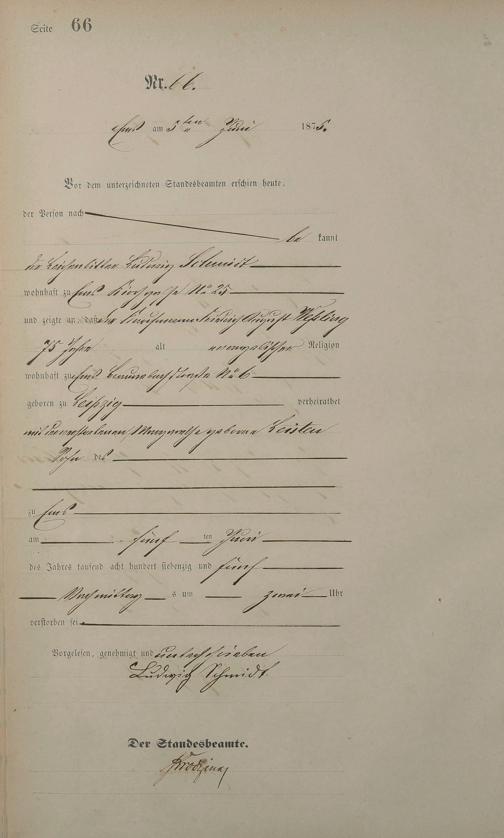 Seite 66
Nr. 66.
Ems am 5ten Juni 1875.
Vor dem unterzeichneten Standesbeamten erschien heute,
der Person nach
be kannt
der Leichenbitter Ludwig Schmidt
wohnhaft zu Ems Kirchgasse No 25
und zeigte an, daß der Kaufmann Friedrich August
75 Jahre alt evangelischer Religion
wohnhaft zu Ems No 6
geboren zu Leipzig verheirathet
mit der verstorbenen geborene
Sohn des
zu Ems
am fünf ten Juni
des Jahres tausend acht hundert siebenzig und fünf
Nachmittag s um zwei Uhr
verstorben sei
Vorgelesen, genehmigt und unterschrieben
Ludwig Schmidt
Der Standesbeamte.